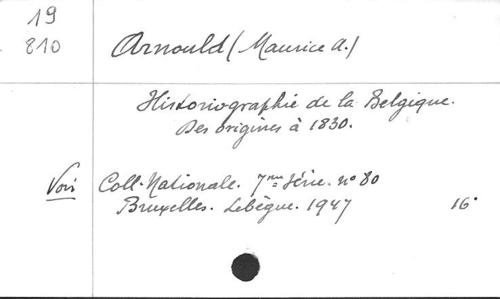 19
810
Arnould (Maurice A.)
Historiographie de la Belgique.
Des origines à 1830.
Voir Coll. Nationale. 7me Série. no 80
Bruxelles. Lebègue. 1947 16°